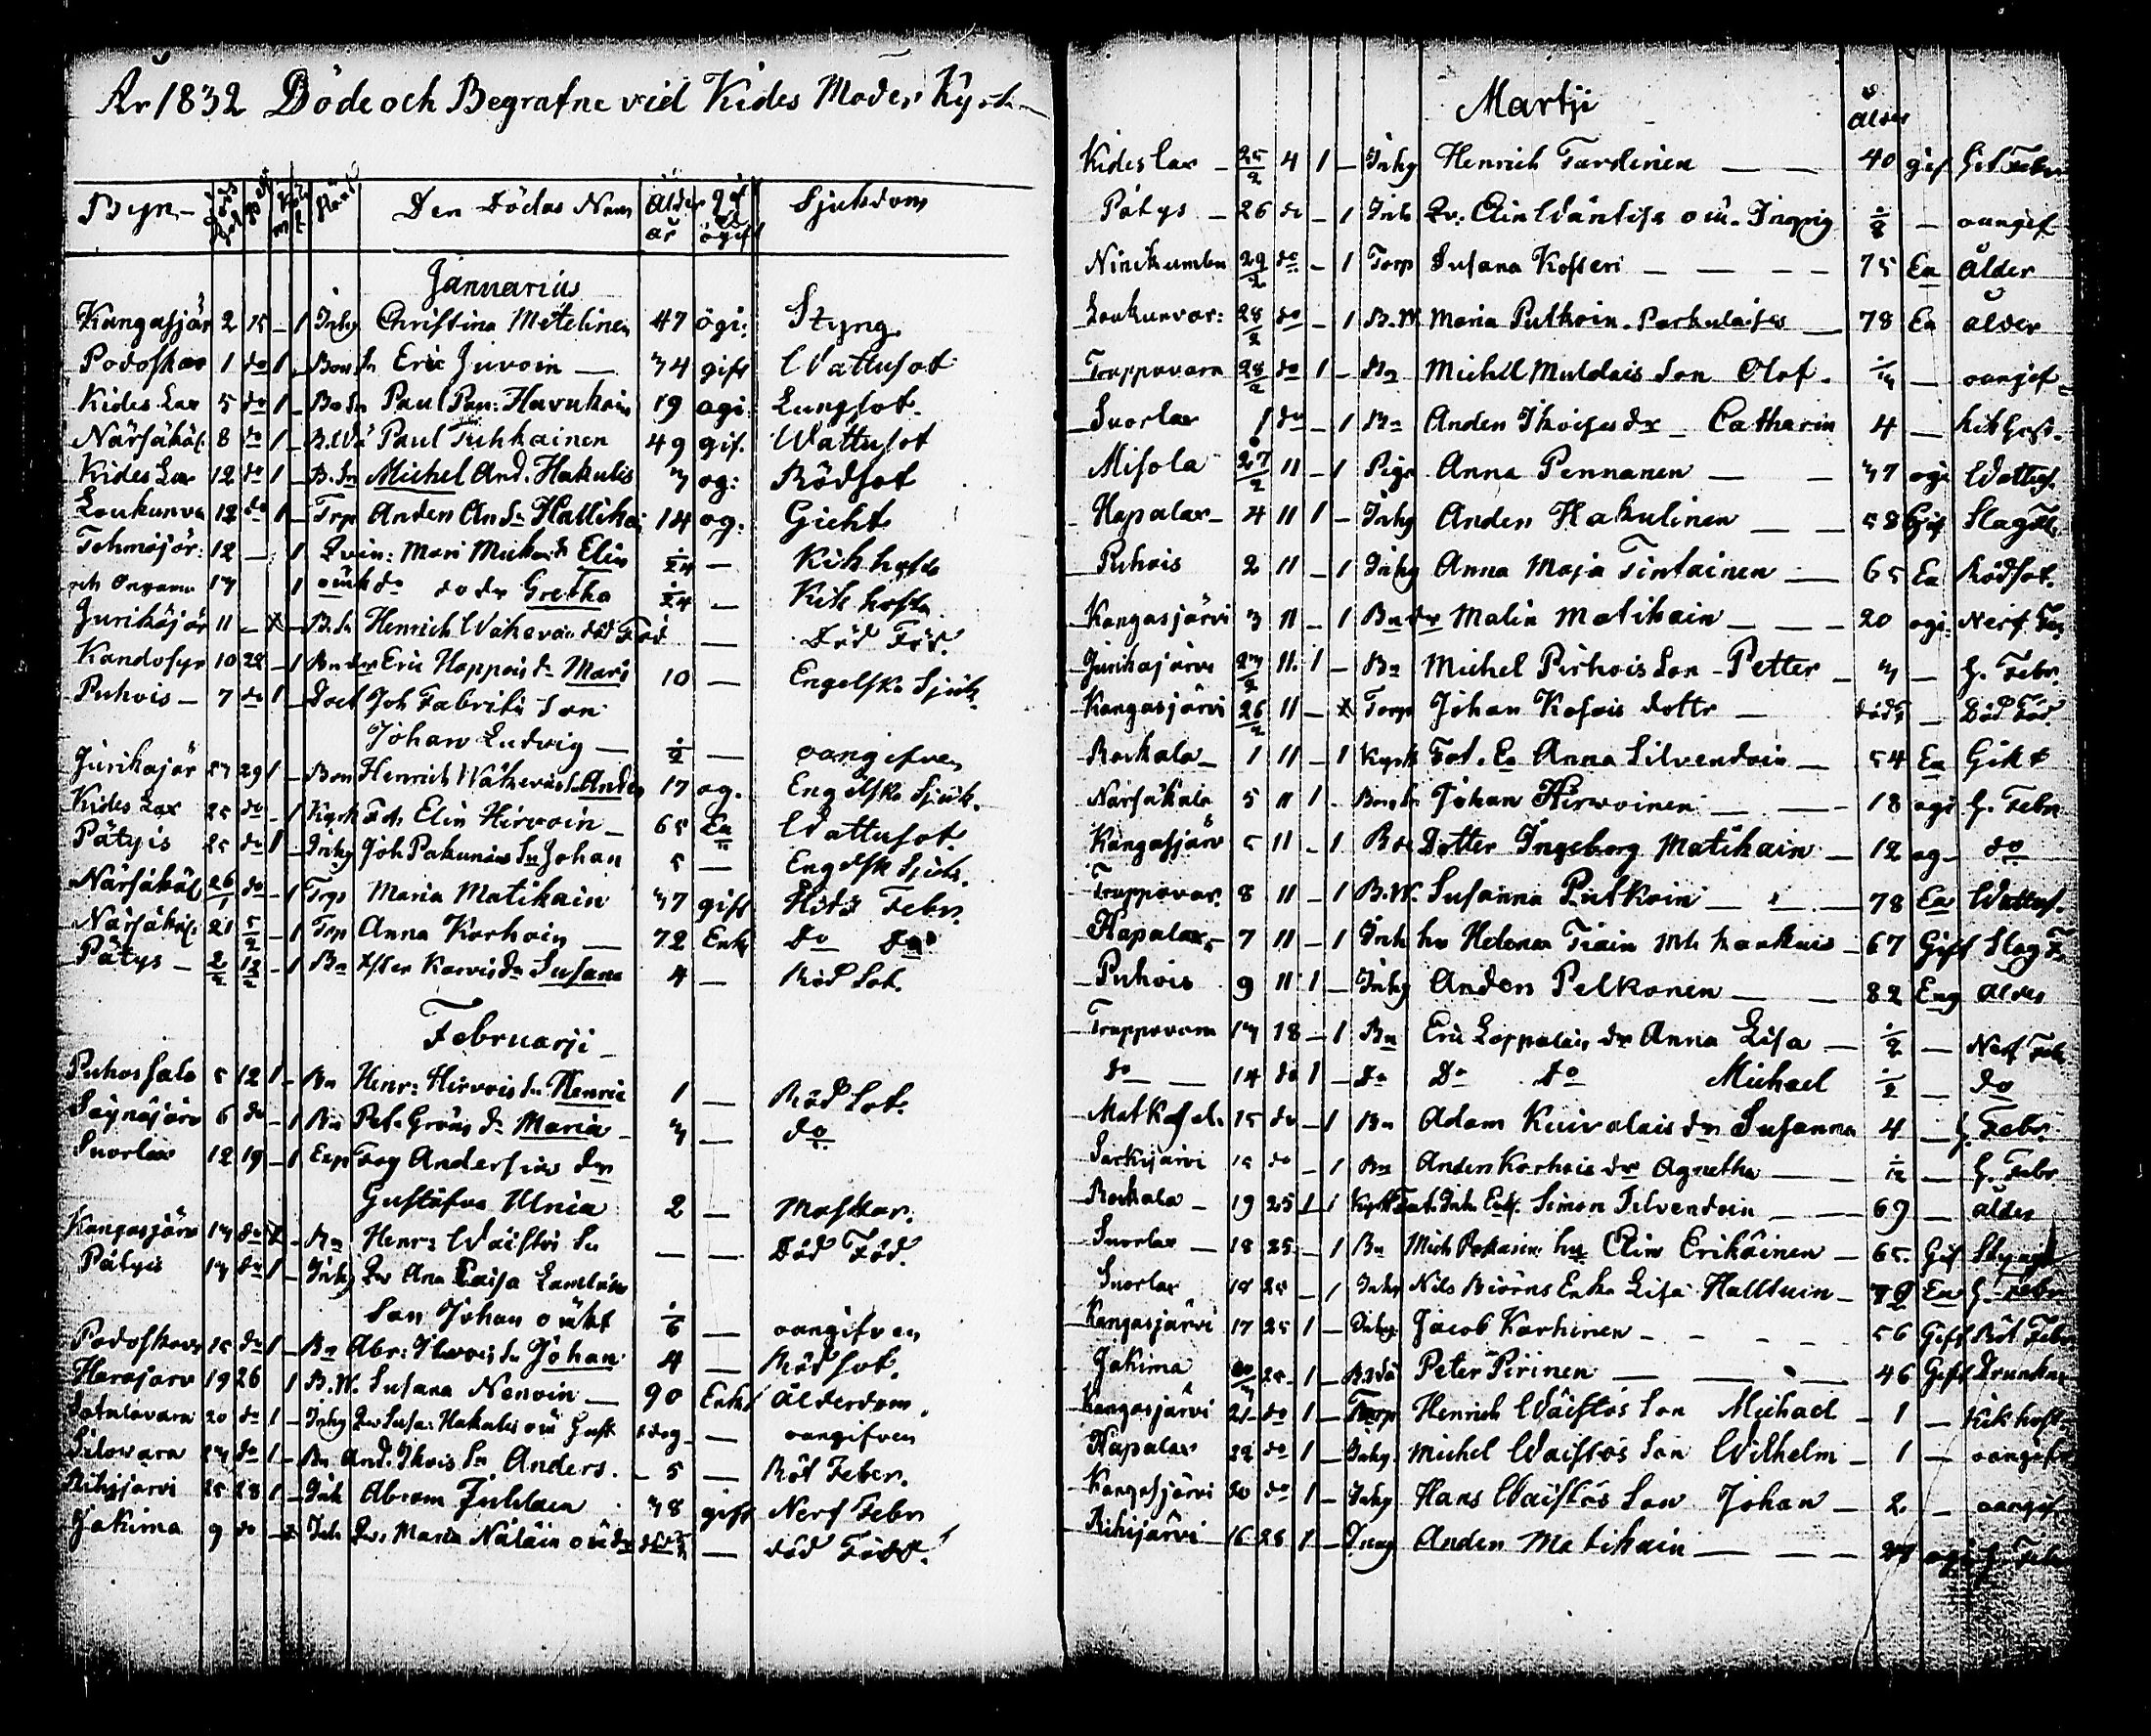 År 1832 Döde och Begrafne vid Kides Moder Kyrk
Byn Den Dödas Namn Ålder år gift ogift Sjukdom
Januarius
Kangasjär 2 15 – 1 Inhy Christina Metelinen 47 ogi: Styng
Podoskav 1 do 1 – Bon Sn Eric Juvoin — 34 gift Wattusot
Kides Lax 5 do 1 – Bo Sn Paul Pau: Havukain 19 ogi Lungsot.
Närsäkäl 8 do 1 – B.Wä Paul Tuhkainen 49 gif. Wattusot
Kides Lax 12 do 1 – B. Sn Michel And. Hakulis 3 og: Rödsot
Loukunva 12 do 1 – Trp Anden An Sn Hallikai 14 og. Gicht
Tohmajär: 12 – 1 Qvin: Mari Dr Elin 1/24 — Kik hosta
och Onkamo 13 1 oäkt do do dr Gretha 1/24 — Kik hosta
Jurikajär 11 – B. Sn Henrich Wäkevä död Föd — Död Föd.
Kandosyr 10 22 – 1 Bn dr Eric Hoppois dr Mari 10 — Engelska Sjuk.
Puhois – 7 do 1 – Doct Joh Fabriti Son
Johan Ludvig — 1/2 — oangifven
Jurikajär 23 29 1 – Bon Henrich Wäkeväis S. Anders 17 og. Engelska Sjuk.
Kides Lax 25 do – 1 Kyrk Fat. Elin Hirvoin – 65 Ea Wattusot.
Pätyis 25 do 1 – Inhy Joh Pakunis Sn Johan 5 — Engelsk Sjuk.
Närsäkäl 26/1 do – 1 Trp Maria Matikain 37 gift Hits Febr.
Närsäkäl. 21 5/2 – 1 Trp Anna Korhoin — 72 Enk Do Do
Pätys – 2/2 12/2 – 1 Bn Ester Karvis dr Susana 4 — Röd Sot.
Februarji
Puhossalo 5 12 1 – Bn Henr: Hirvois Sn Henric 1 — Röd Sot.
Säynäjärv 6 do – 1 Bn Pet. Gröns dr Maria – 3 — do
Suorlax 12 19 – 1 Exp Fog Andersins dr
Gustafva Ulrica 2 — Maskar.
Kangasjärv 13 do – Bn Henr: Waistos Sn — — Död Föd.
Pätyis 13 do 1 – Inhy Qv Ana Caisa
Son Johan oäkt 1/6 — oangifven
Podoskavr 15 do 1 – Bn Abr: Sn Johan 4 — Röd sot.
Harajarv 19 26 1 B.W. Susana Nenoin — 90 Enk Ålderdom
20 do 1 – Inhy Qv Susa: Hakulis oäk Gust — oangifven
Silowara 23 do 1 – Bn And: Ikois Sn Anders. – 5 — Röt Feber.
Rihijärvi 25 28 1 – Inh Abram 38 gift Nerf Febr
Jakima 9 do – Inh Qv. Maria oäk dr — död Född.
Martji
Ålder
Kides Lax – 25/2 4 1 – Inhy Henrich Tardinen — — 40 gif Het Febr
Pätys – 26 do – 1 Inh Qv: Elin Wäntisk oäk. Ingrig 1/8 — oangif
Ninikumbu 29/2 do – 1 Torp Susana Kosseri — — — 75 Ea Ålder
Loukunvar: 28/2 do – 1 B.W. Maria Putkoin — 78 Ea ålder
Truppovara 28/2 do 1 – Bn Michell Muldais Son Olof. — oangif
Suorlax 1 do – 1 Bn Anden Ikoises dr – Catharin 4 — Kik host.
Misola 27/2 11 – 1 Piga Anna Pennanen — — 37 ogi Wattus.
Hapalax – 4 11 1 – Inhy Anden Hakulinen — — 58 Gif Slag
Puhois 2 11 – 1 Inhy Anna Maja Tintainen — 65 Ea Rödsot.
Kangasjärvi 3 11 – 1 Bn dr Malin Matikain — — 20 ogi: Nerf Feb
Jurikajärvi 27/2 11 1 – Bn Michel Pirhois Son – Petter – 3 — H. Febr.
Kangasjärvi 26/2 11 – Torp Johan Kosois dottr — död — Död Föd
Roskala – 1 11 – 1 Kyrk Fat. Ea Anna Silvendoin — 54 Ea Gikt
Närsäkala 5 11 1 – Bon Sn Johan Hirwoinen — — 18 ogi H. Febr
Kangasjärv 5 11 – 1 Bn Dotter Ingeborg Matikain — 12 og – do
Truppovar. 8 11 – 1 B.W. Susanna Putkoin — — 78 Ea Wattus.
Hapalax 7 11 – 1 Inh hu Helena Tiain — 67 Gift Slag F.
Puhois 9 11 1 – Inhy Anders Pelkonen — — 82 Eng ålder
Truppovara 13 18 – 1 Bn Eric Loppalais dr Anna Lisa — 1/2 — Nerf Feb
do — 14 do 1 – Do Do Do Michael 1/2 — do
Matkasel. 15 do – 1 Bn Adam Kuivalais dr Susanna 4 — H. Febr.
Särkijärvi 15 do – 1 Bn Anden Korhois dr Agnetha — — H. Febr
Roskala – 19 25 1 Kyrk Fat. Inh. Enk. Simon Silvendoin — — 69 — ålder
Suorlax — 18 25 – 1 Bn Mich hu Elin Erikäinen — 65. Gif Styng
Suorlax 18 25 – 1 Inhy Nils Biörns Enka Lisa Halltuin — Ea H. Febr
Kangasjärvi 17 25 1 – Inhy Jacob Karhinen – – – 56 Gift Röt. Febr
Jakima 25 – 1 – B.Wä Peter Pirinen — — — 46 Gift Drunkna
Kangasjärvi 21 do 1 – Torp Henrich Wäistös Son Michael – 1 — Kik host
Hapalax 22 do 1 – Inhy Michel Waistös Son Wilhelm – 1 — oangifv
Kangasjärvi 20 do 1 – Inhy Hans Waistös Son Johan — 2 — oangif
Rihijärvi – 16 28 1 – Inhy Anden Matikain — — — ogi H. Febr